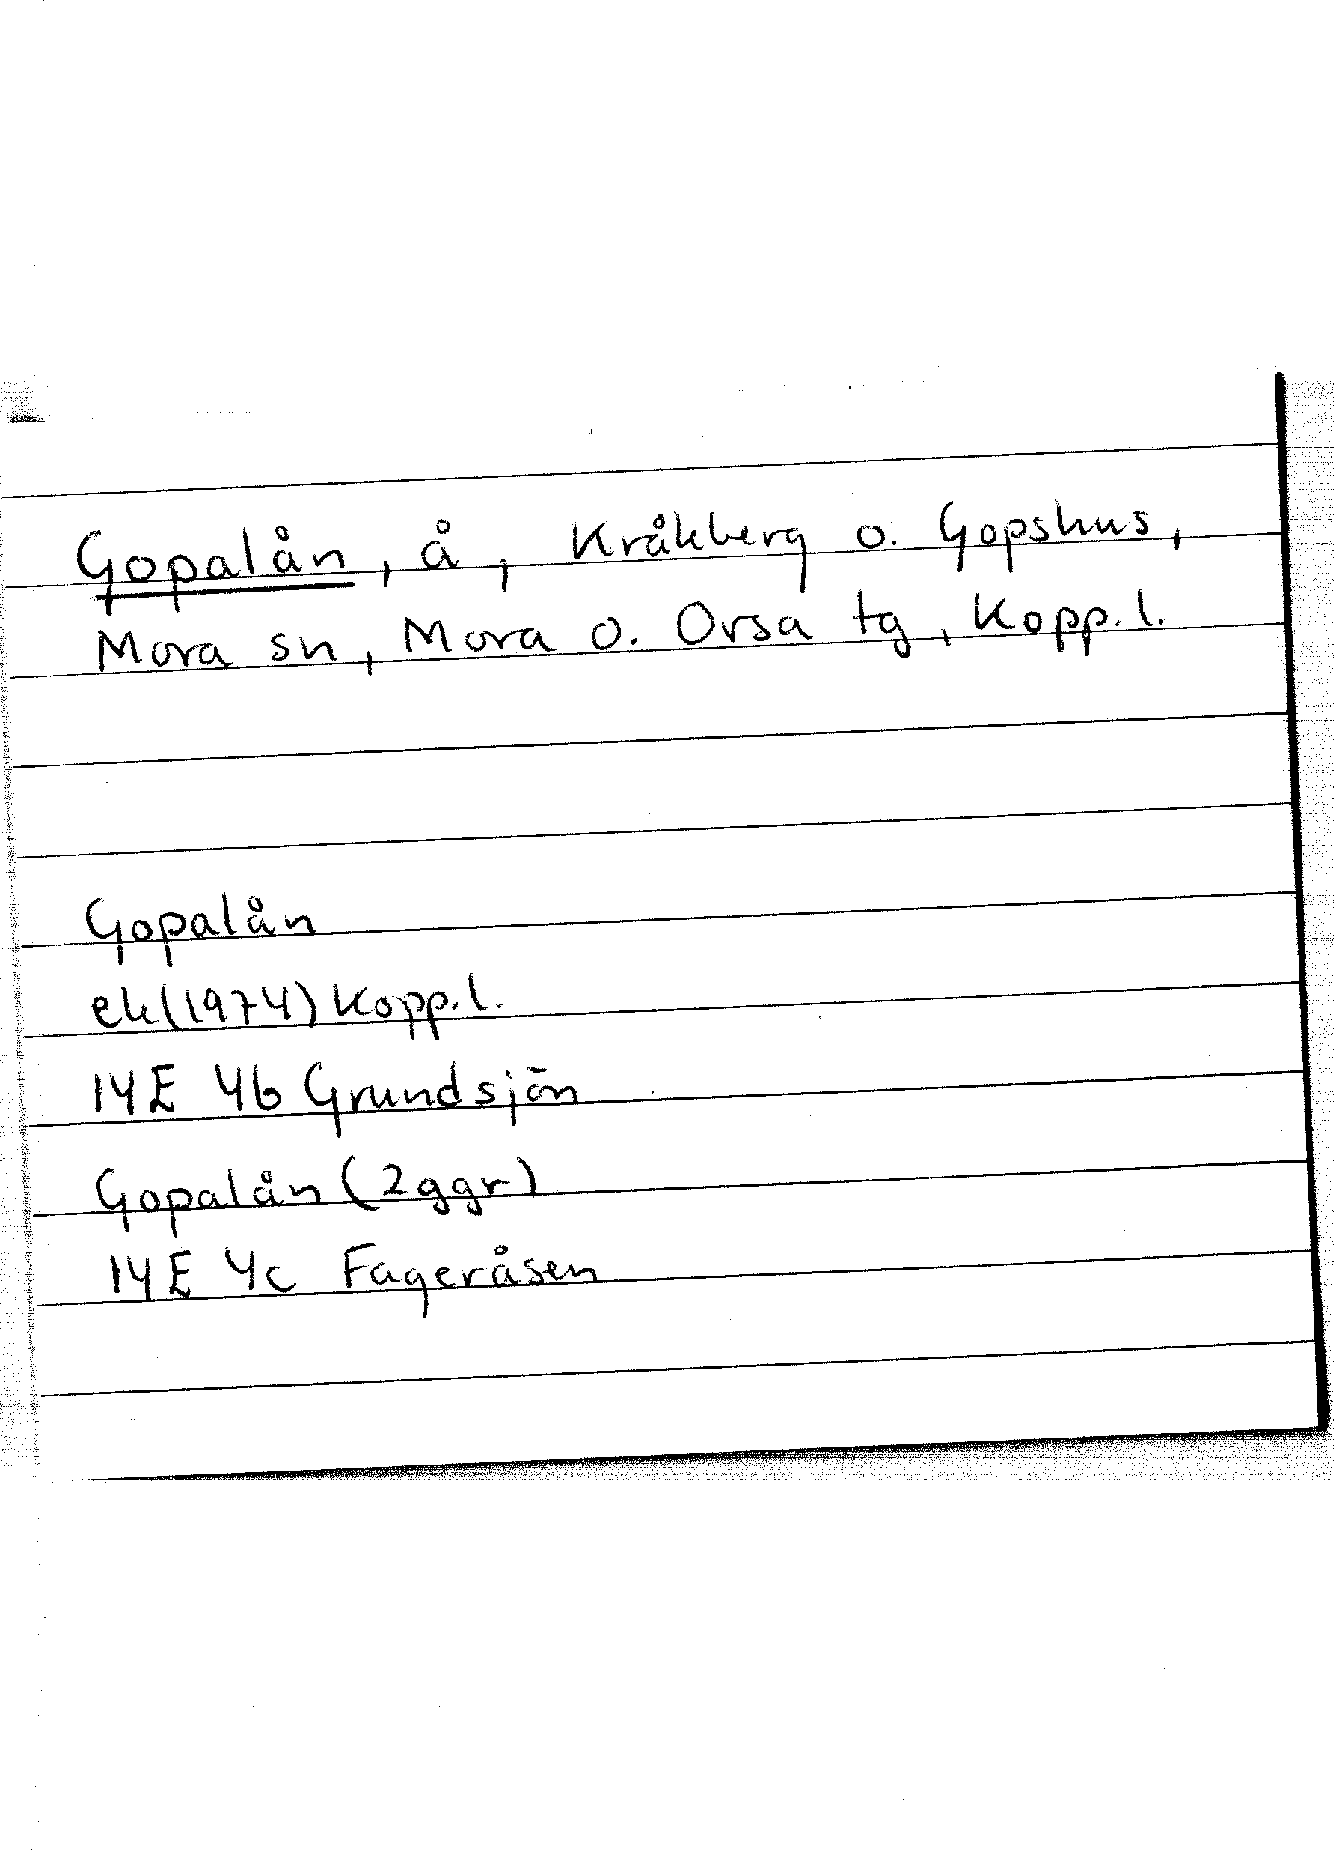 Gopalån, å, Kråkberg o. Gopshus,
Mora sn, Mora o. Orsa tg, Kopp. l.
Gopalån
ek (1974) Kopp. l.
14E 4b Grundsjön
Gopalån (2ggr)
14E 4c Fageråsen